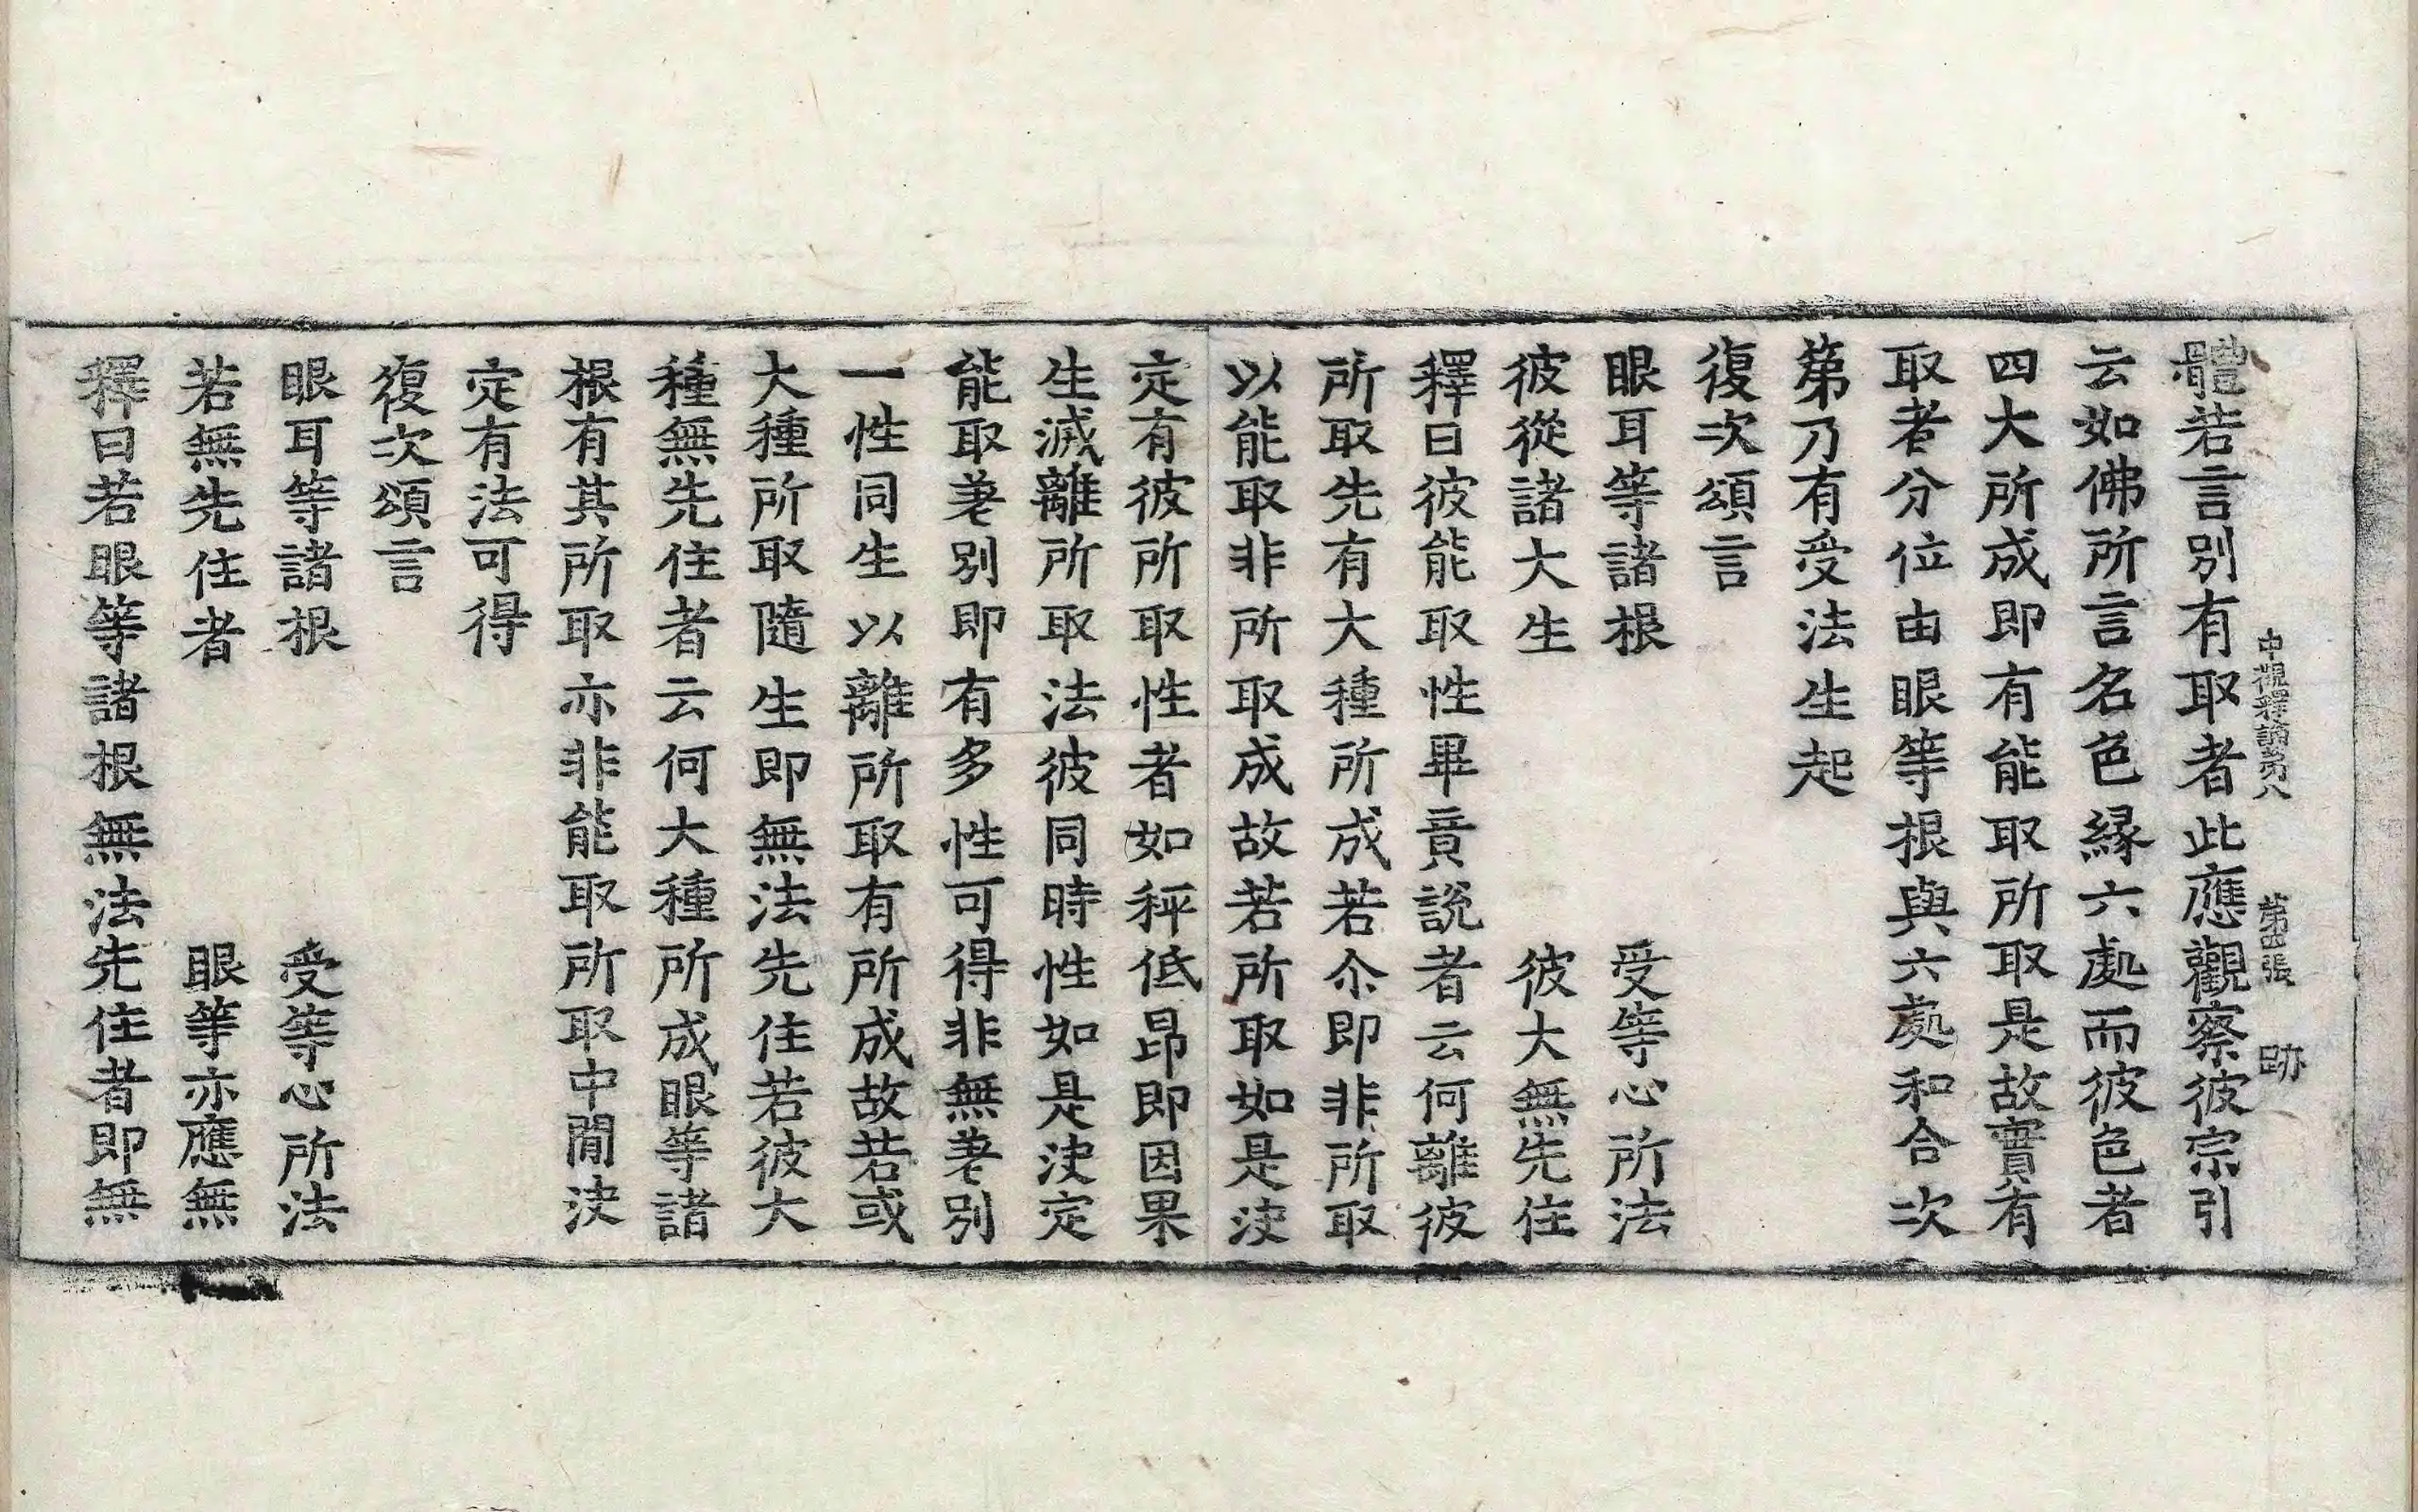 中觀釋論第八　第四張　跡
體若言別有取者此應觀察彼宗引
云如佛所言名色緣六處而彼色者
四大所成即有能取所取是故實有
取者分位由眼等根與六處和合次
第乃有受法生起
復次頌言
眼耳等諸根　受等心所法
彼從諸大生　彼大無先住
釋曰彼能取性畢竟說者云何離彼
所取先有大種所成若尒即非所取
以能取非所取成故若所取如是決
定有彼所取性者如秤低昂即因果
生滅離所取法彼同時性如是決定
能取差別即有多性可得非無差別
一性同生以離所取有所成故若或
大種所取隨生即無法先住若彼大
種無先住者云何大種所成眼等諸
根有其所取亦非能取所取中間決
定有法可得
復次頌言
眼耳等諸根　受等心所法
若無先住者　眼等亦應無
釋曰若眼等諸根無法先住者即無